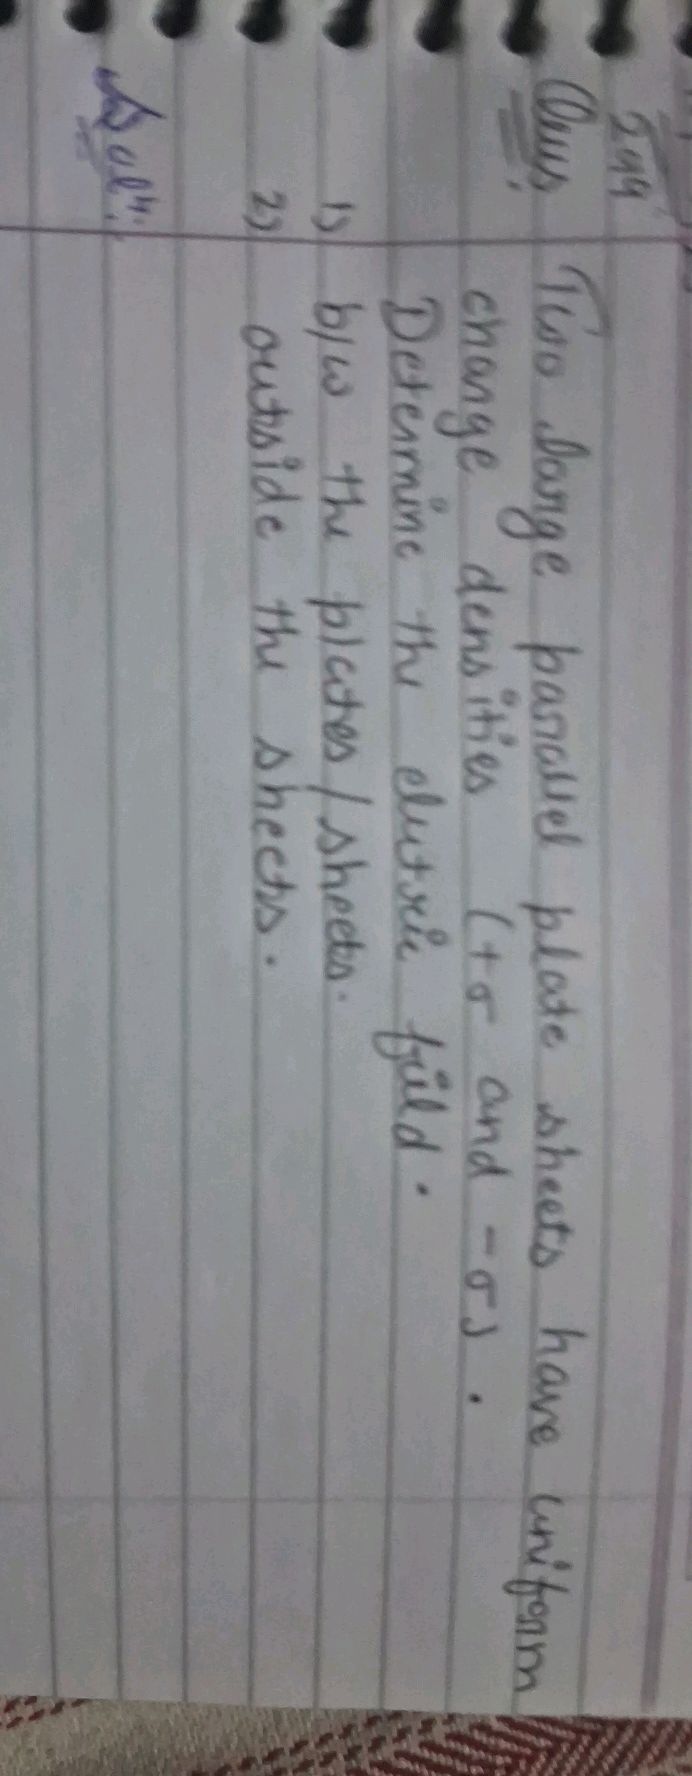 299
Ques. Two large parallel plate sheets have uniform
charge densities (+σ and -σ).
Determine the electric field.
1) b/w the plates/sheets.
2) outside the sheets.
Solⁿ: